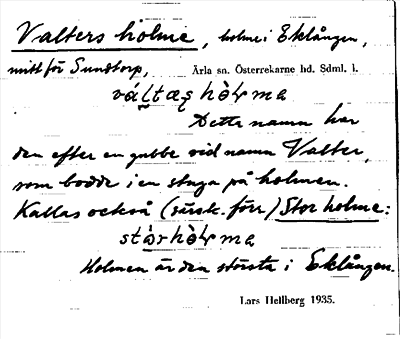 Valters holme, holme i Eklången,
mitt för Sundtorp, Ärla sn. Österrekarne hd. Sdml. l.
váļtæȩ hòłma
Dette namn har
den efter en gubbe vid namn Valter,
som bodde i en stuga på holmen.
Kallas också (särsk. förr) Stor holme:
stòr hòłma
Holmen är den största i Eklången.
Lars Hellberg 1935.